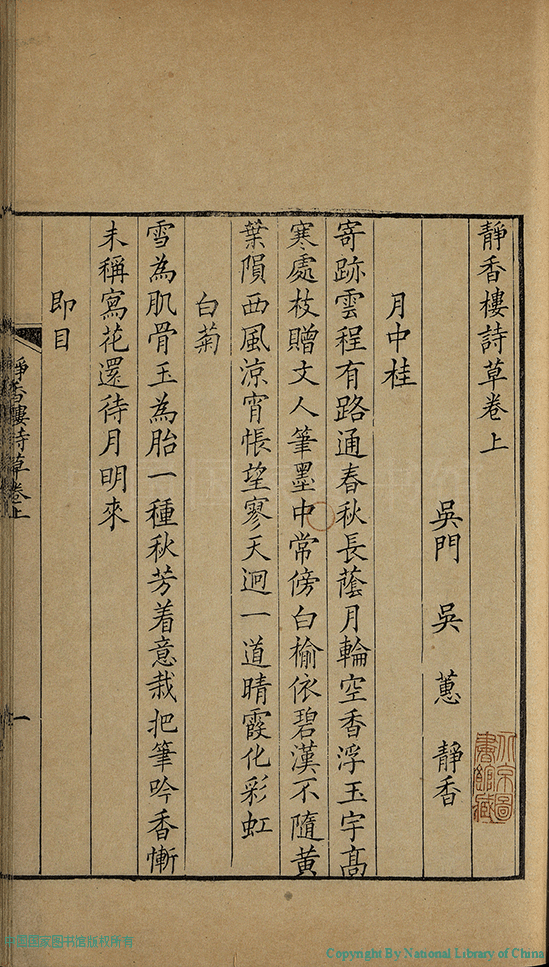 靜香樓詩草卷上
吳門 吳蕙 靜香
月中桂
寄跡雲程有路通春秋長蔭月輪空香浮玉宇高
寒處枝贈文人筆墨中常傍白榆依碧漢不隨黃
葉隕西風涼宵悵望寥天迥一道晴霞化彩虹
白菊
雪為肌骨玉為胎一種秋芳着意栽把筆吟香慚
未稱寫花還待月明來
即目
靜香樓詩草卷上
一
北京圖
書館藏
中国国家图书馆版权所有
Copyright By National Library of China